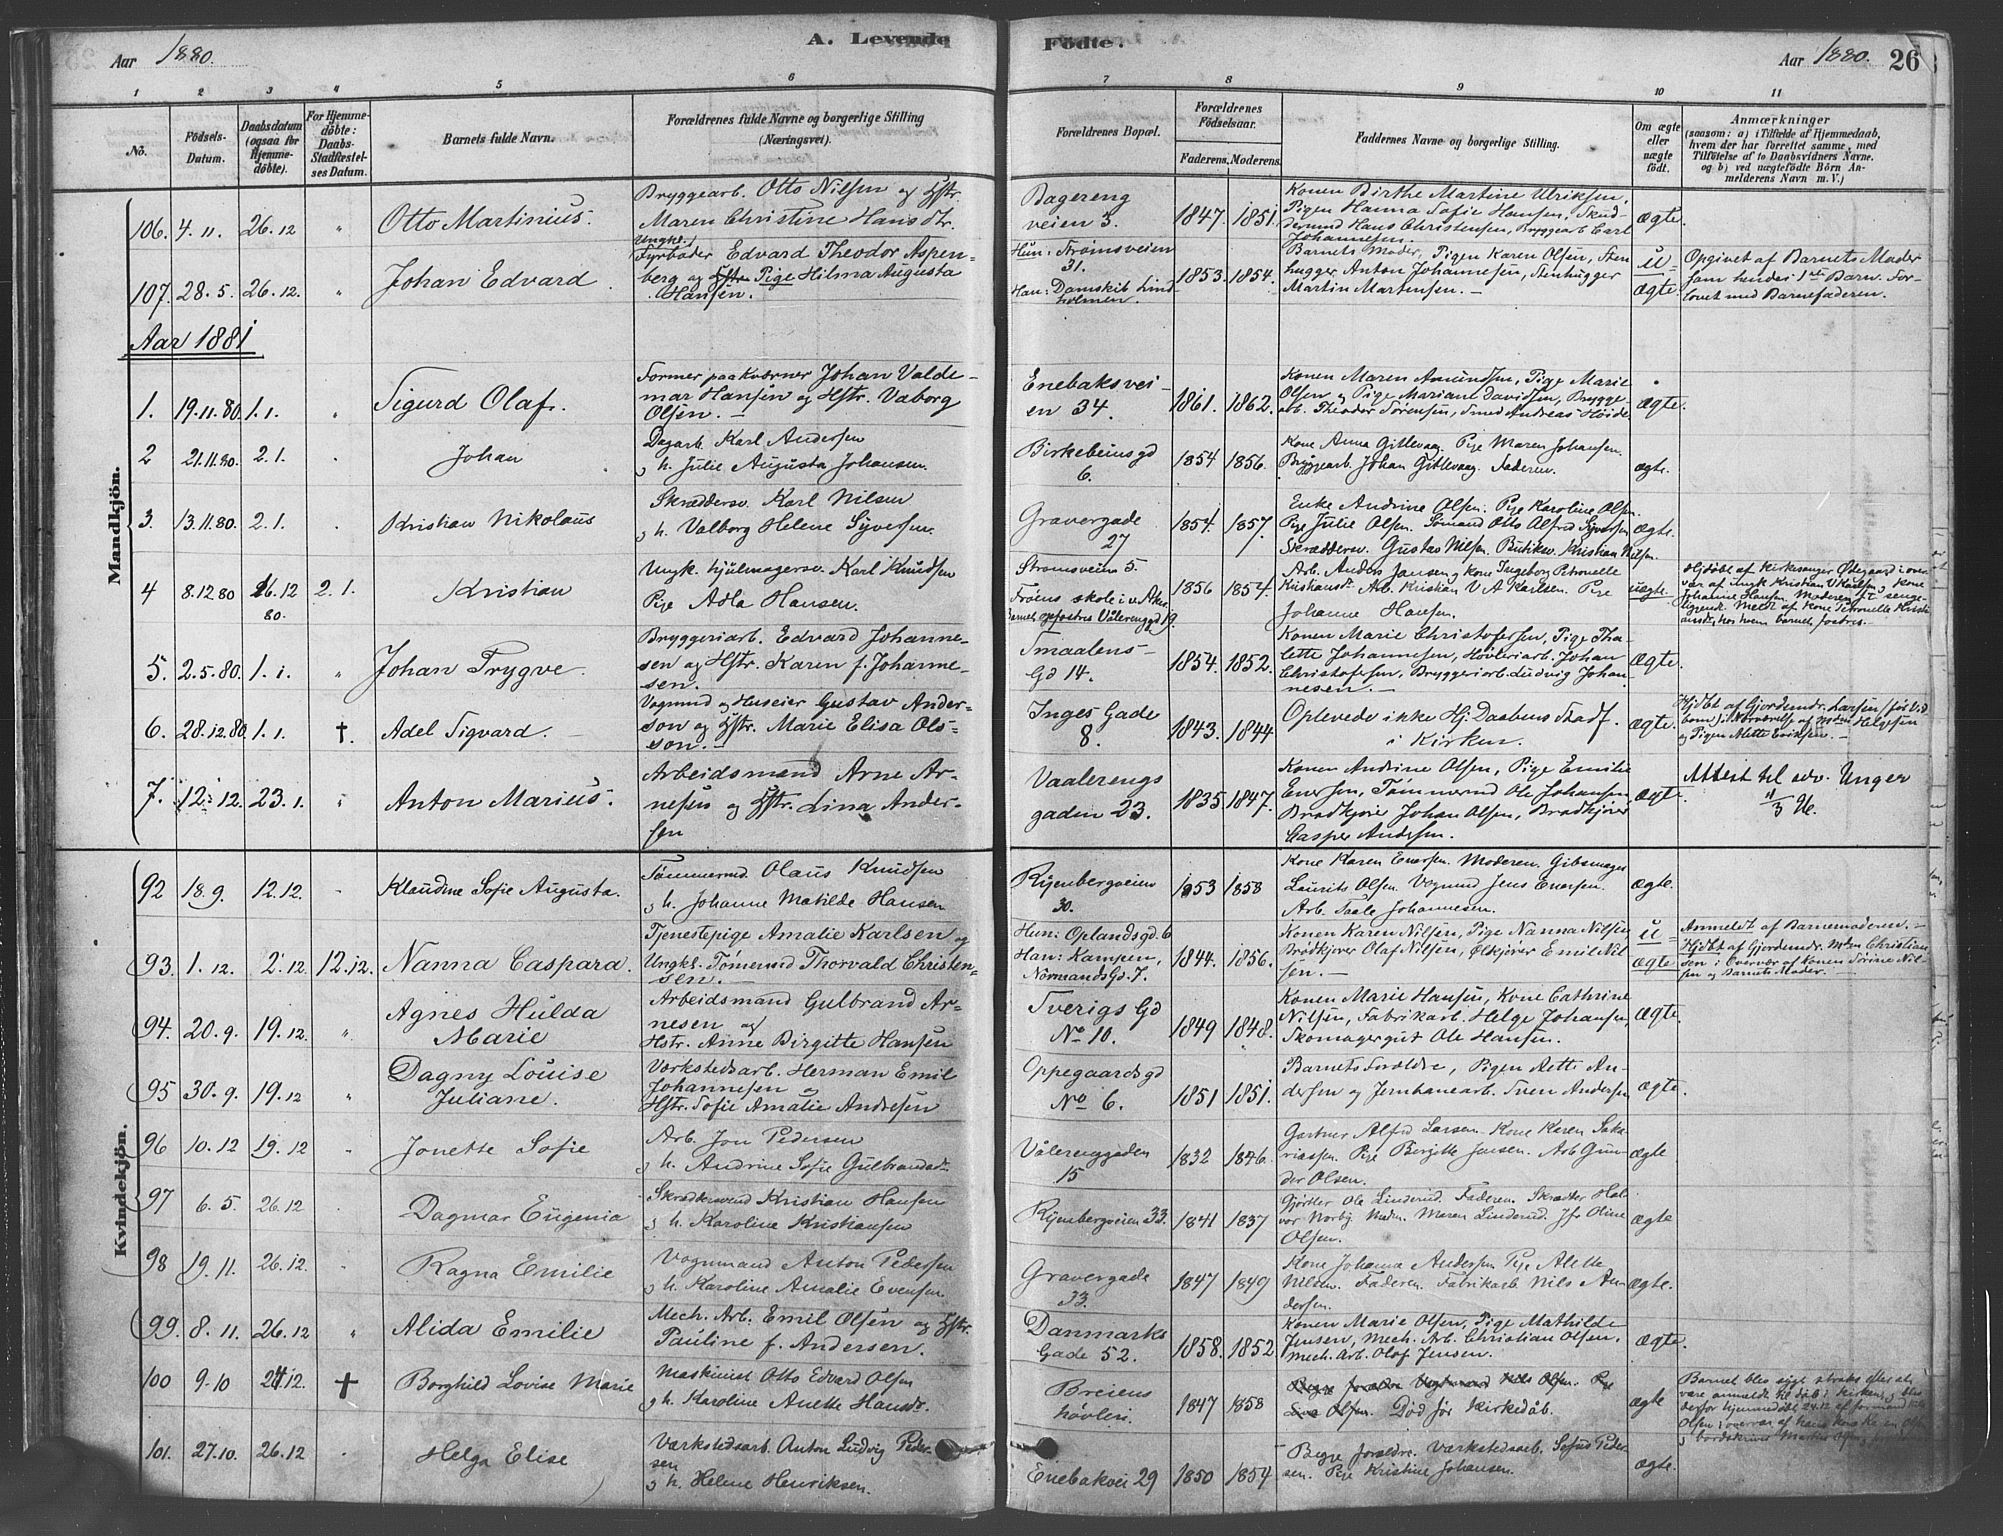 Aar 1880.
A. Levende
Födte.
Aar 1880. 26
1 2 3 4 5 6
7 8 9 10 11
No.
Födsels-Datum.
Daabsdatum (ogsaa for Hjemmedöbte).
For Hjemmedöbte: Daabs-Stadfæstelses Datum.
Barnets fulde Navn.
Forældrenes fulde Navne og borgerlige Stilling (Næringsvei).
Forældrenes Bopæl.
Forældrenes Födselsaar.
Faderens. Moderens.
Faddernes Navne og borgerlige Stilling.
Om ægte eller uægte födt.
Anmærkninger
(saasom: a) i Tilfælde af Hjemmedaab, hvem der har forrettet samme, med Tilföielse af to Daabsvidners Navne. og b) ved uægtefödte Börn Anmelderens Navn m. V.)
Mandkjön.
106. 4. 11. 26. 12 " Otto Martinius.
Bryggearb. Otto Nilsen og Hstr.
Maren Christine Hansdtr.
Bagereng
veien 3.
1847. 1851.
Konen Birthe Martine Ulriksen,
Pigen Hanna Sofie Hansen,
Hans Christensen, Bryggearb Carl
Johannesen.
Ægte.
107. 28. 5. 26. 12. " Johan Edvard.
Ungkl.
Fyrbøder Edvard Theodor Aspen-
berg og Hstr. Pige Hilma Augusta
Hansen.
Hun: Strømsveien
31.
Han: Damskib Lind
holmen.
1853. 1854.
Barnets Moder, Pigen Karen Olsen, Sten
hugger Anton Johannesen, Stenhugger
Martin Martensen. —
u=
Ægte.
Opgivet af Barnets Moder
som hendes 1ste Barn. For-
lovet med Barnefaderen.
Aar 1881
1. 19. 11. 80. 1. 1. " Sigurd Olaf.
Former paa Kværner Johan Valde-
mar Hansen og Hstr. Valborg
Olsen. —
Enebaksvei-
en 34.
1861. 1862.
Konen Maren Amundsen, Pige Marie
Olsen og Pige Mariane Davidsen, Brygge-
arb. Theodor Sørensen, Smed Andreas Høide
Ægte.
2 21. 11. 80. 2. 1. Johan
Dagarb. Karl Andersen
og h. Julie Augusta Johansen.
Birkebeinsgd
6.
1854 1856.
Kone Anna Gitlevaag. Pige Maren Johansen.
Bryggearb. Johan Gitlevaag. Faderen.
ægte.
3. 13. 11. 80. 2. 1. Kristian Nikolaus
Skræddersv. Karl Nilsen
og h. Valborg Helene Syversen.
Gravergade
27
1854. 1857.
Enke Andrine Olsen. Pige Karoline Olsen.
Pige Julie Olsen. Sømand Otto Alfred Syversen
Skræddersv. Gustav Nilsen. Butiksv. Kristian Nilsen.
ægte.
4 8. 12 80 26. 12 80. 2. 1. Kristian
Ungk. hjulmagersv. Karl Knudsen
Pige Adla Hansen.
Strømsveien 5.
Frøens skole i v. Aker
Barnet opfostres Vålerenggd 19.
1856 1854.
Arb. Anders Jansen og kone Ingeborg Petronelle
Kristiansdt. Arb. Kristian V. A Karlsen. Pige
Johanne Hansen.
uægte.
Hjdøbt af Kirkesanger Østgaard i over
vær af Ungk Kristian V Karlsen og Kone
Johanne Hansen. Moderen senge-
liggende. Meldt af Kone Petronelle Kristi
ansdt, hos hvem barnet fostres.
5. 2. 5. 80. 1. 1. " Johan Trygve.
Bryggeriarb. Edvard Johanne-
sen og Hstr. Karen f. Johanne-
sen.
Smaalens-
Gd 14.
1854. 1852.
Konen Marie Christofersen, Pige Tha-
lette Johannesen, Høvleriarb. Johan
Christofersen, Bryggeriarb. Ludvig Johan-
nesen. —
Ægte.
6. 28. 12. 80. 1. 1. † Adel Sigvard.
Vognmd og Huseier Gustav Ander-
son og Hstr. Marie Elisa Ols-
son. —
Inges Gade
8.
1843. 1844
Oplevede ikke Hj. Daabens Stadf.
i Kirken.
Ægte.
Hjdbt af Gjordemdr. Larsen
i Nærværelse af Helgesen
og Pigen Alette Eriksen. —
7. 12. 12. 23. 1. " Anton Marius.
Arbeidsmand Arne Ar-
nesen og Hstr. Lina Ander-
sen
Vaalerengs
gaden 23.
1835. 1847.
Konen Andrine Olsen, Pige Emilie
Enersen, Tømmermd Ole Johansen,
Brødkjører Johan Olsen, Brødkjører
Casper Andersen.
Ægte.
Attest til adv. Unger
11/3
Kvindekjön.
92 18. 9. 12. 12. Klaudine Sofie Augusta.
Tømmermd Olaus Knudsen
og h. Johanne Matilde Hansen
Ryenbergveien
30.
1853 1858
Kone Karen Enersen. Moderen. Gibsmager
Laurits Olsen. Vognmd Jens Enersen.
Arb. Taale Johannesen.
ægte.
93. 1. 12. 2. 12. 12. 12. Nanna Caspara.
Tjenestepige Amalie Karlsen og
Ungkl. Tømermd Thorvald Christen-
sen. —
Hun: Oplandsgd. 6
Han: Kampen,
Normandsgd. 7.
1844. 1856.
Konen Karen Nilsen, Pige Nanna Nilsen
Brødkjører Olaf Nilsen, Ølkjører Emil Nil
sen. —
u=
Ægte
Anmeldt af Barnemoderen. —
Hjdbt af Gjordemdr. Mdm Christian
sen i Overvær af Konen Torine Nil-
sen og Barnets Moder. —
94. 20. 9. 19. 12. " Agnes Hulda
Marie
Arbeidsmand Gulbrand Ar-
nesen og
Hstr. Anne Birgitte Hansen
Sverigs Gd
No 10.
1849 1848.
Konen Marie Hansen, Kone Cathrine
Nilsen, Fabrikarb. Helge Johansen,
Skomagergut Ole Hansen.
Ægte.
95 30. 9. 19. 12 " Dagny Louise
Juliane.
Værkstedsarb. Herman Emil
Johannesen og
Hstr. Sofie Amalie Andresen
Oppegaardsgd
No 6.
1851 1851.
Barnets Forældre, Pigen Alette An-
dersen og Jernbanearb. Sven Andersen
Ægte.
96 10. 12 19. 12 Jonette Sofie
Arb. Jon Pedersen
og h. Andrine Sofie Gulbrandsdt.
Vålerenggaden
15
1832 1846.
Gartner Alfred Larsen. Kone Karen Saka-
riassen. Pige Bergitte Jensen. Arb Gun-
der Olsen.
ægte
97 6. 5. 26. 12 Dagmar Eugenia
Skrædersvend Kristian Hansen
og h. Karoline Kristiansen
Ryenbergveien 33.
1841 1837
Gjørtler Ole Linderud. Faderen. Skrædder Hal-
vor Norby. Maren Linderud. Jfr Oline
Olsen.
ægte
98 19. 11. 26. 12. Ragna Emilie
Vognmand Anton Pedersen
og h. Karoline Amalie Evensen
Gravergade
33.
1847 1849
Kone Johanna Andersen Pige Alette
Nilsen. Faderen. Fabrikarb Nils An
dersen.
ægte.
99. 8. 11. 26. 12 " Alida Emilie
Mech. Arb. Emil Olsen og Hstr.
Pauline f. Andersen.
Danmarks
Gade 52.
1858. 1852
Konen Marie Olsen, Pige Mathilde
Jensen, Mech. Arb. Christian Olsen,
Mech. Arb. Olaf Jensen.
Ægte.
100 9. 10 24. 12. † Borghild Lovise Marie
Maskinist Otto Edvard Olsen
og h. Karoline Anette Hansdt.
Breiens
høvleri.
1847 1858
Begge forældre Vognmand Nils Olsen. Pige
Olsen. Död før Kirkedåb.
ægte
Barnet blev sygt straks efter at
være anmeldt til dåb i kirken, og blev
derfor hjemmedöbt 24.12 af formand
Olsen i overvær af hans
101. 27. 10. 26. 12 Helga Elise
Værkstedsarb. Anton Ludvig Peder-
sen
og h. Helene Henriksen.
Enebakvei 29
1850 1854
Begge forældre. Værkstedsarb. Sofus Peder
sen. Pige Kristine Johansen.
ægte.